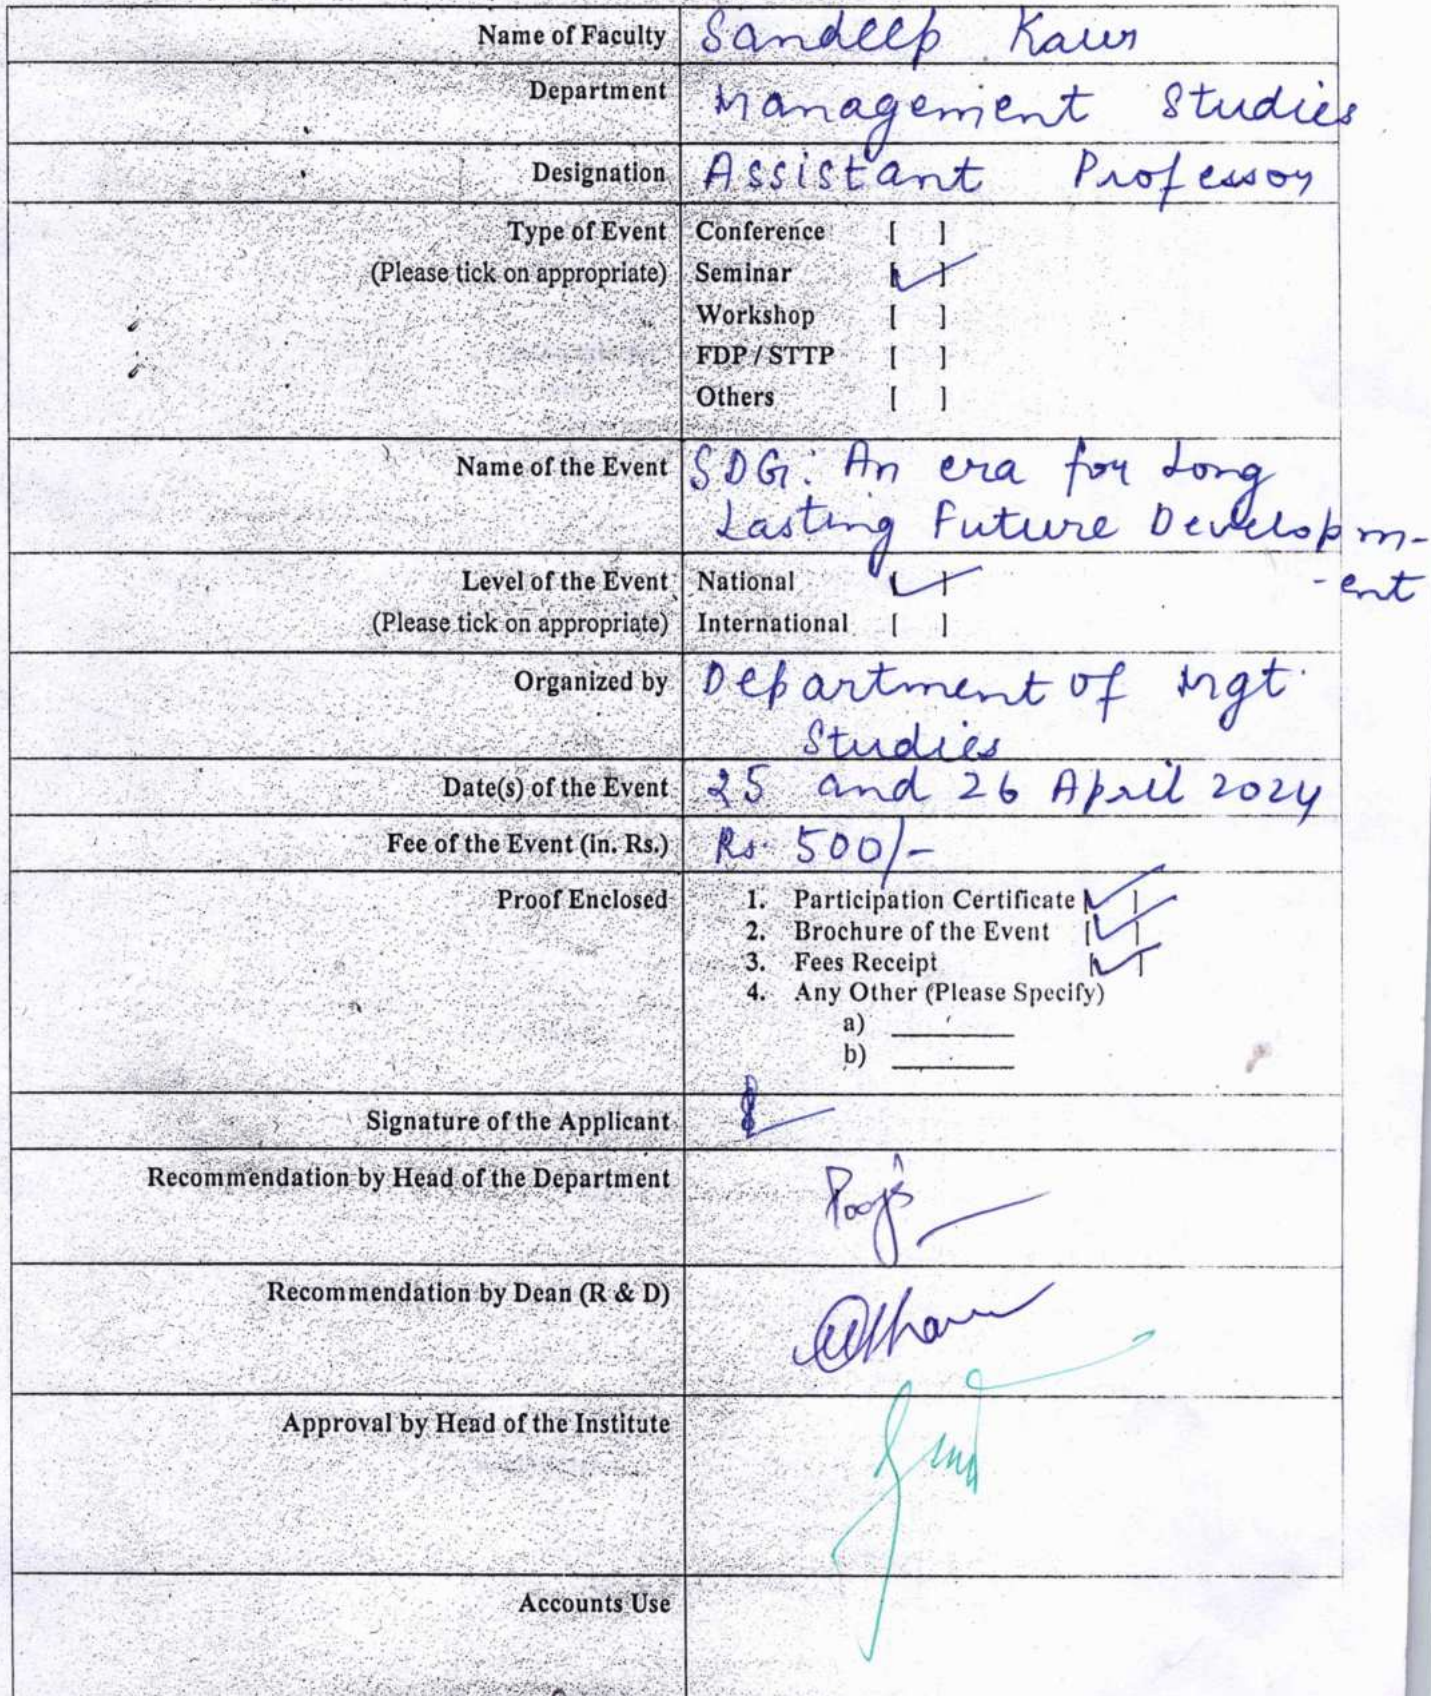 Name of Faculty Sandeep Kaur
Department Management Studies
Designation Assistant Professor
Type of Event Conference [ ]
(Please tick on appropriate) Seminar [✓]
Workshop [ ]
FDP / STTP [ ]
Others [ ]
Name of the Event SDG: An era for Long
Lasting Future Developm-
-ent
Level of the Event National [✓]
(Please tick on appropriate) International [ ]
Organized by Department of Mgt.
Studies
Date(s) of the Event 25 and 26 April 2024
Fee of the Event (in. Rs.) Rs. 500/-
Proof Enclosed 1. Participation Certificate [✓]
2. Brochure of the Event [✓]
3. Fees Receipt [✓]
4. Any Other (Please Specify)
a) ________
b) ________
Signature of the Applicant
Recommendation by Head of the Department Pooja
Recommendation by Dean (R & D)
Approval by Head of the Institute
Accounts Use